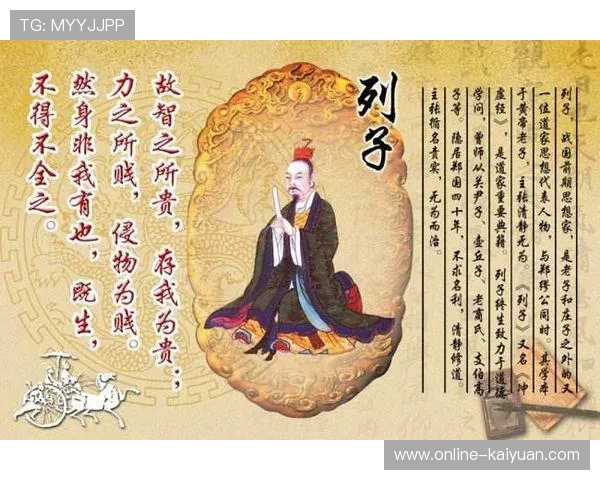 TG: MYYJJPP
列子
列子，战国前期思想家，是老子和庄子之外的又
一位道家思想代表人物，与郑缪公同时。其学本
于黄帝老子，主张清静无为。《列子》又名《冲
虚经》，是道家重要典籍。列子终生致力于道德
学问，曾师从关尹子、壶丘子、老商氏、支伯高
子等。隐居郑国四十年，不求名利，清静修道。
主张循名责实，无为而治。
故智之所贵，存我为贵；
力之所贱，侵物为贱。
然身非我有也，既生，
不得不全之。
www.online-kaiyuan.com